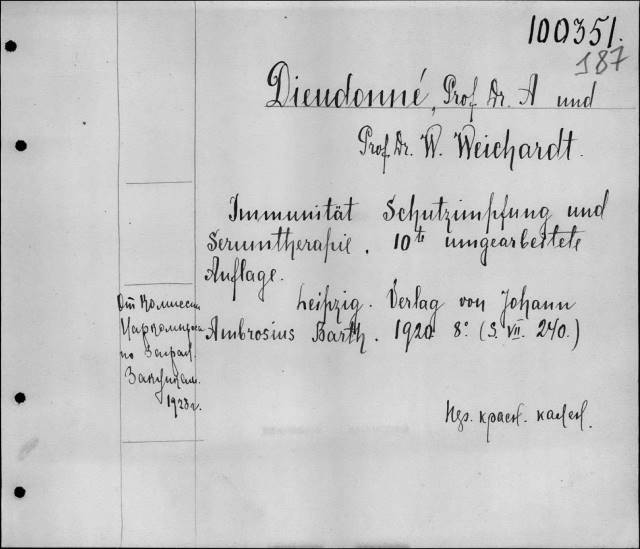 100351.
187
Dieudonné, Prof. Dr. A und
Prof. Dr. W. Weichardt.
Immunität Schutzimpfung und
Serumtherapie. 10te umgearbeitete
Auflage.
Leipzig. Verlag von Johann
Ambrosius Barth. 1920 8° (S. VII. 240.)
От Комиссии
Наркомпроса
по Заграл.
Закупкам.
1923г.